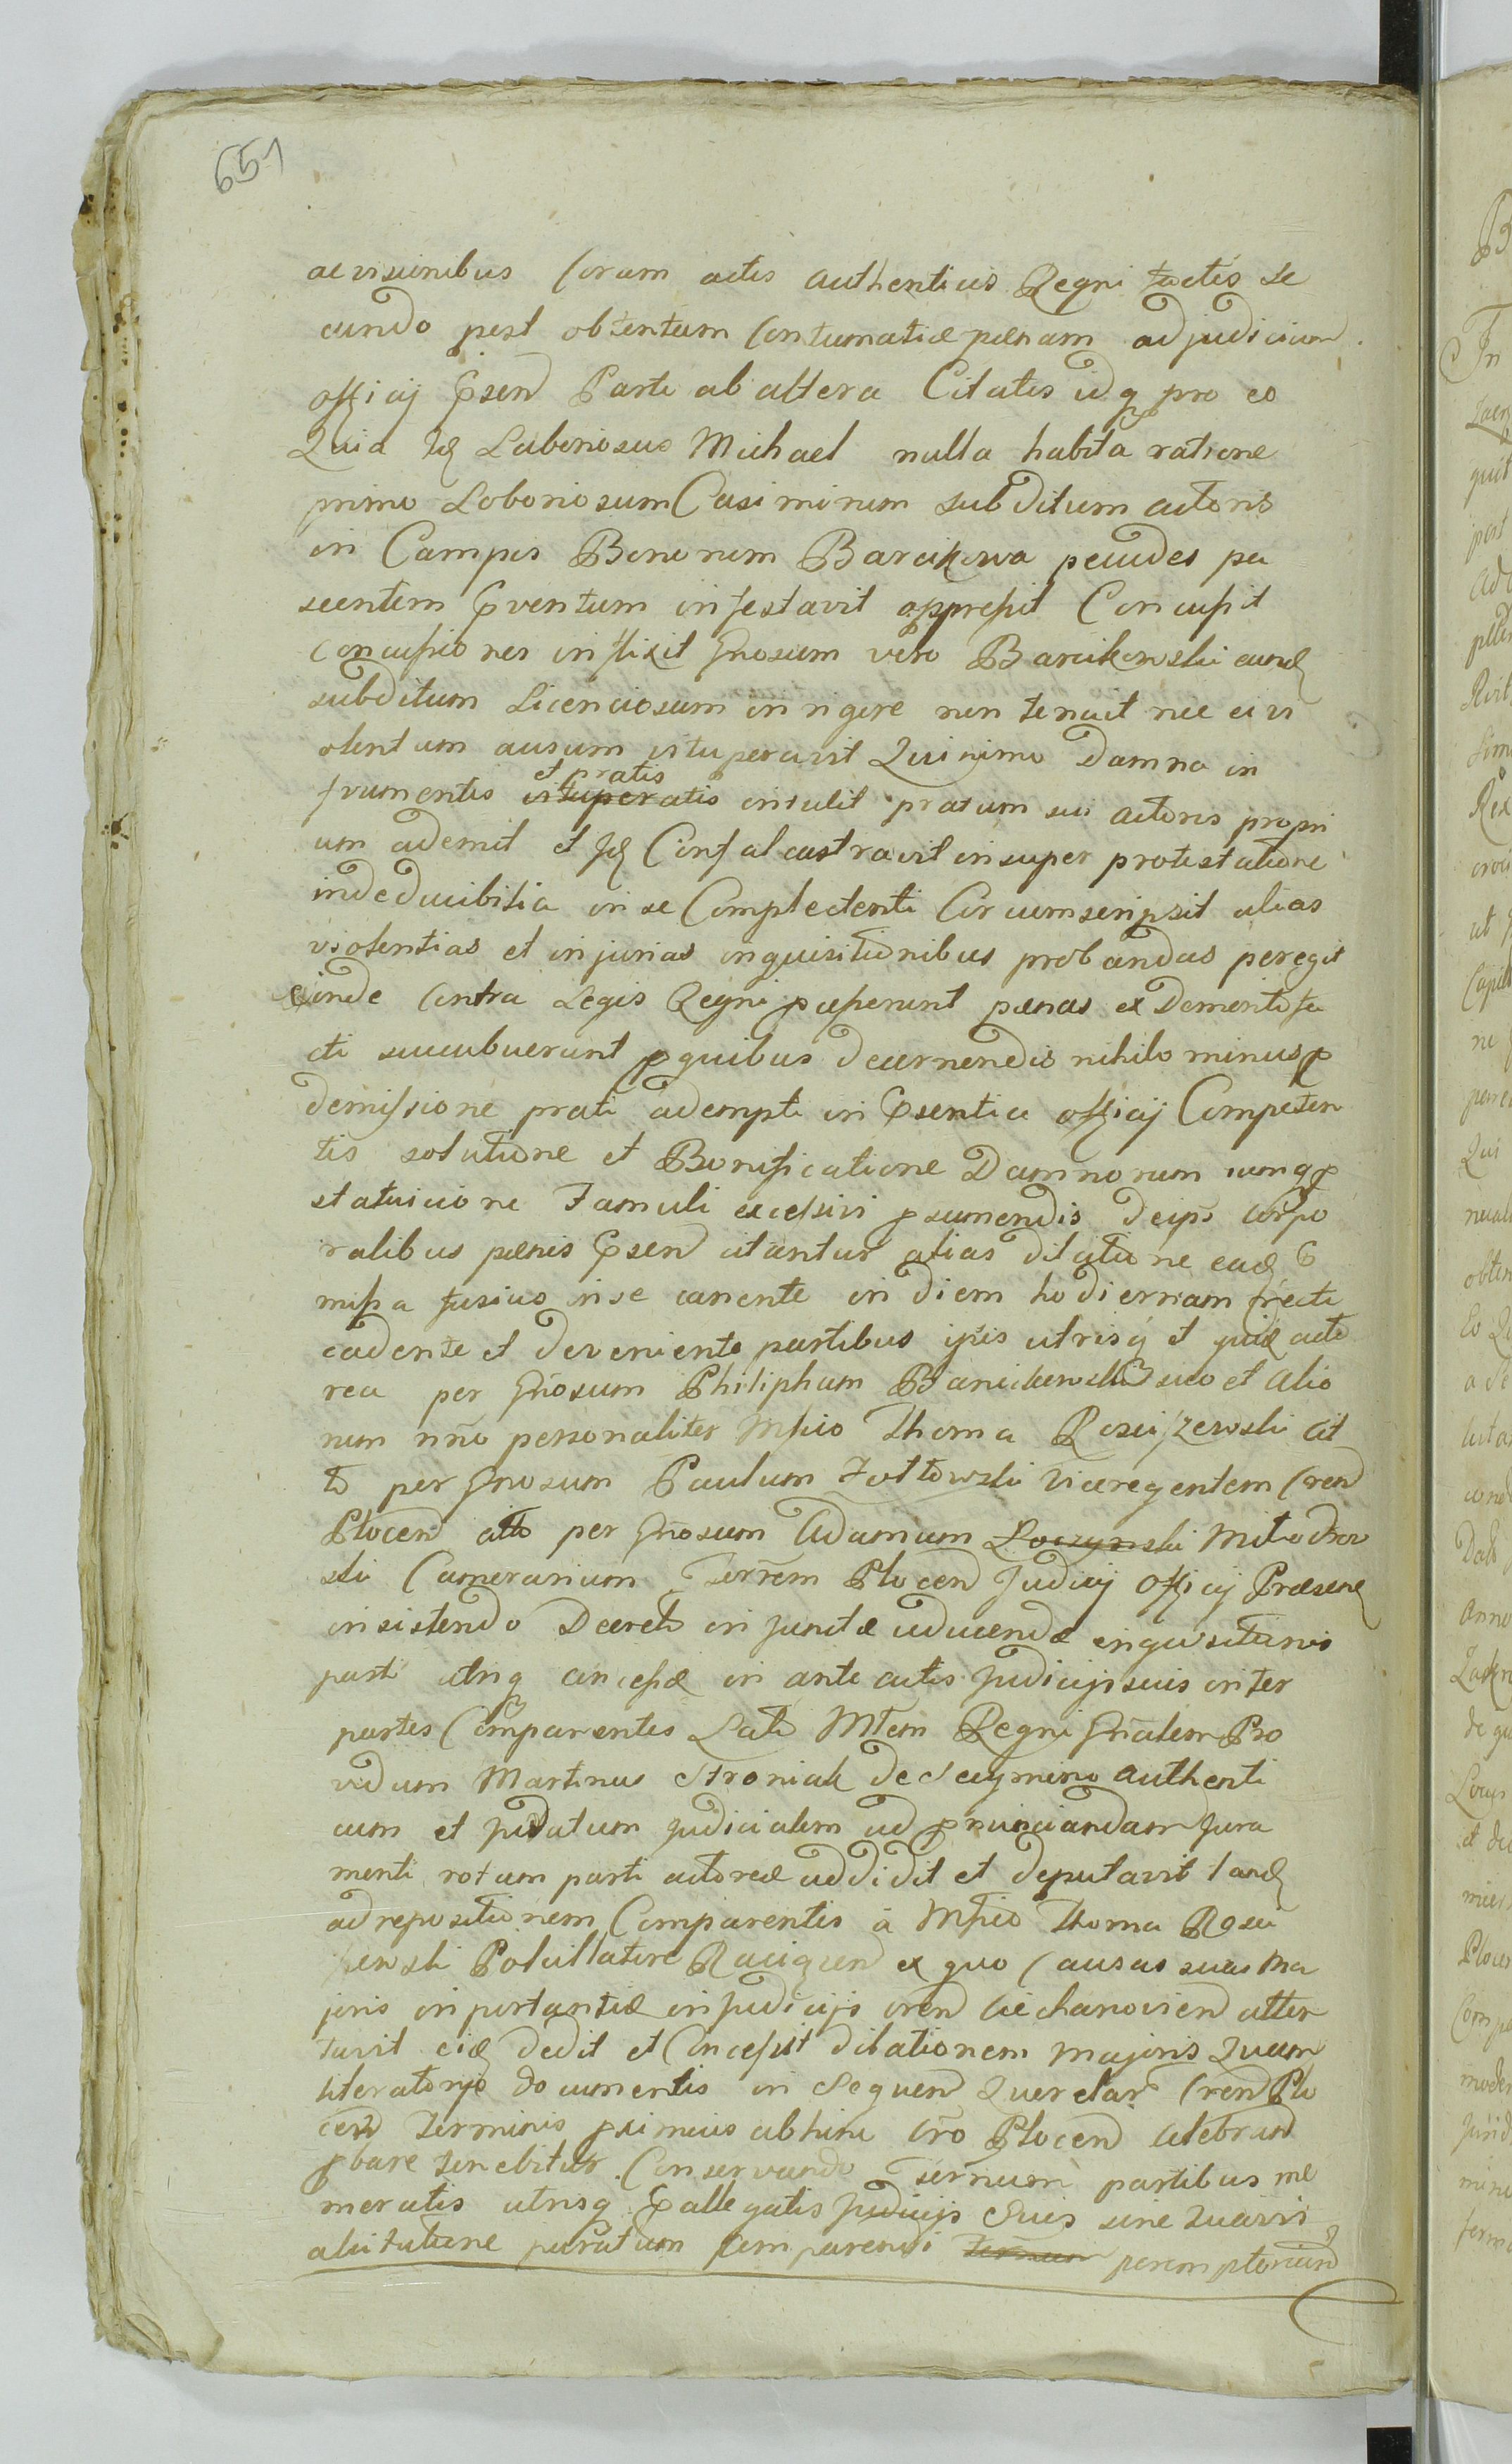 651
ac visionibus Coram actis authenticis Regni factis se
cundo post obtentam Contumatiæ pænam ad judicium
officij Psen Parte ab altera Citatis idq pro eo
Quia Idem Laboriosus Michael nulla habita ratione
primo Loboriosum Casimirum subditum actoris
in Campis Bonorum Barcikowa pecudes pa
scentem Pventum infestavit oppressit Concussit
concussiones inflixit Gnosum vero Barcikowski eund
subditum Licenciosum in rigore non tenuit nec ei vi
olentum ausum vituperavit Quinimo Damna in
frumentis et pratis vituperatis intulit pratum sui actoris propri
um ademit et insuper protestatione
indeducibilia in se Complectenti Circumscripsit alias
violentias et injurias inquisitionibus probandas peregit
exinde Contra Legis Regni pænas ex Demerito fa
cti succubuerunt p quibus decernendis nihilo minus p
demissione prati adempti in Psentia officij Competen
tis solutione et Bonificatione Damnorum cumq p
statuicione Famuli excessivi p sumendis de ipso corpo
ralibus pænis Psen citantur alias dilatione ead
missa fusius in se canente in diem hodiernam recte
cadente et deveniente partibus ipsis utrisq et quid acto
rea per Gnosum Philipham suo et alio
rum nno personaliter Mfico Thoma Rosciszewski cit
to per Gnosum Paulum Zołtowski Viceregentem Cren
Plocen citto per Gnosum Adamum Loczynski Milodrow
ski Camerarium Terrem Plocen Judicij Officij Præsen
insistendo Decreto injunctæ educendæ inquisitionis
parti utriq concessæ in ante actis Judicijs suis inter
partes Comparentes Lato Mtem Regni Gnalem Pro
vidum Martinus Stroniak de Secymino authenti
cum et juratum judicialem ad pnunciandam Jura
menti rotam parti actoreæ addidit et deputavit tand
ad repositionem Comparentis à Mfico Thoma Rosci
szewski Pocillatore Raciązen ex quo Causas suas ma
joris importantiæ in Judicijs cren Ciechanovien atten
tavit eid dedit et Concessit dilationem majoris Quam
literatorijs documentis in Sequen Querelar Cren Plo
cen Terminis primius abhinc Cro Plocen celebran
pbare tenebitur Conservando Ternum partibus me
moratis utrisq P allegatis judicijs Suis sine Quavis
alii tutione paratum comparendi Ternum peremptorium